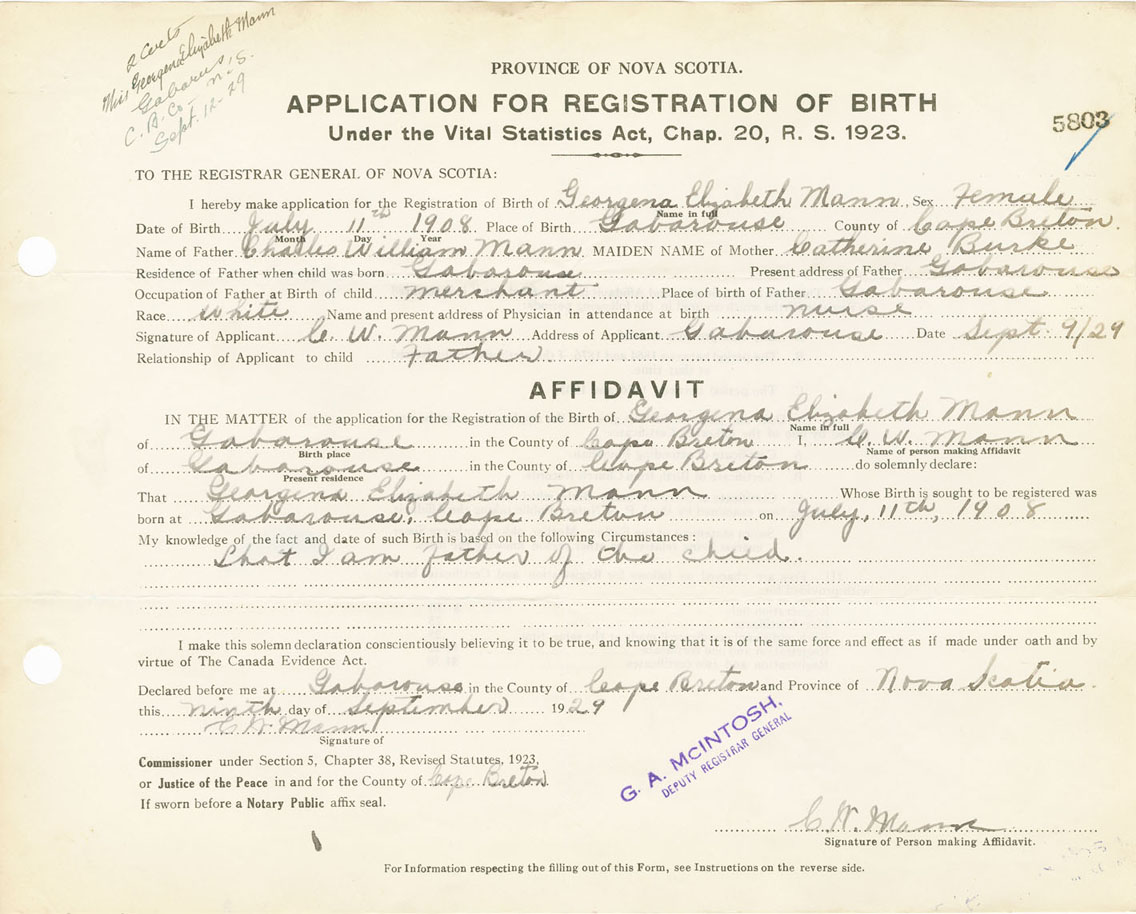 2 Certs
Miss Georgena Elizabeth Mann
Gabarus,
C. B. Co- N. S.
Sept. 12-29
PROVINCE OF NOVA SCOTIA.
APPLICATION FOR REGISTRATION OF BIRTH
Under the Vital Statistics Act, Chap. 20, R. S. 1923.
5803
TO THE REGISTRAR GENERAL OF NOVA SCOTIA:
I hereby make application for the Registration of Birth of Georgena Elizabeth Mann Sex Female
Name in full
Date of Birth July 11th 1908 Place of Birth Gabarouse County of Cape Breton
Month Day Year
Name of Father Charles William Mann MAIDEN NAME of Mother Catherine Burke
Residence of Father when child was born Gabarouse Present address of Father Gabarouse
Occupation of Father at Birth of child merchant Place of birth of Father Gabarouse
Race White Name and present address of Physician in attendance at birth nurse
Signature of Applicant C. W. Mann Address of Applicant Gabarouse Date Sept. 9/29
Relationship of Applicant to child Father
AFFIDAVIT
IN THE MATTER of the application for the Registration of the Birth of Georgena Elizabeth Mann
Name in full
of Gabarouse in the County of Cape Breton I, C. W. Mann
Birth place Name of person making Affidavit
of Gabarouse in the County of Cape Breton do solemnly declare:
Present residence
That Georgena Elizabeth Mann Whose Birth is sought to be registered was
born at Gabarouse, Cape Breton on July, 11th, 1908
My knowledge of the fact and date of such Birth is based on the following Circumstances:
That I am father of the child.
I make this solemn declaration conscientiously believing it to be true, and knowing that it is of the same force and effect as if made under oath and by
virtue of The Canada Evidence Act.
Declared before me at Gabarouse in the County of Cape Breton and Province of Nova Scotia.
this ninth day of September 1929
C W Mann
Signature of
Commissioner under Section 5, Chapter 38, Revised Statutes, 1923,
or Justice of the Peace in and for the County of Cape Breton
If sworn before a Notary Public affix seal.
G. A. McINTOSH,
DEPUTY REGISTRAR GENERAL
C. W. Mann
Signature of Person making Affidavit.
For Information respecting the filling out of this Form, see Instructions on the reverse side.